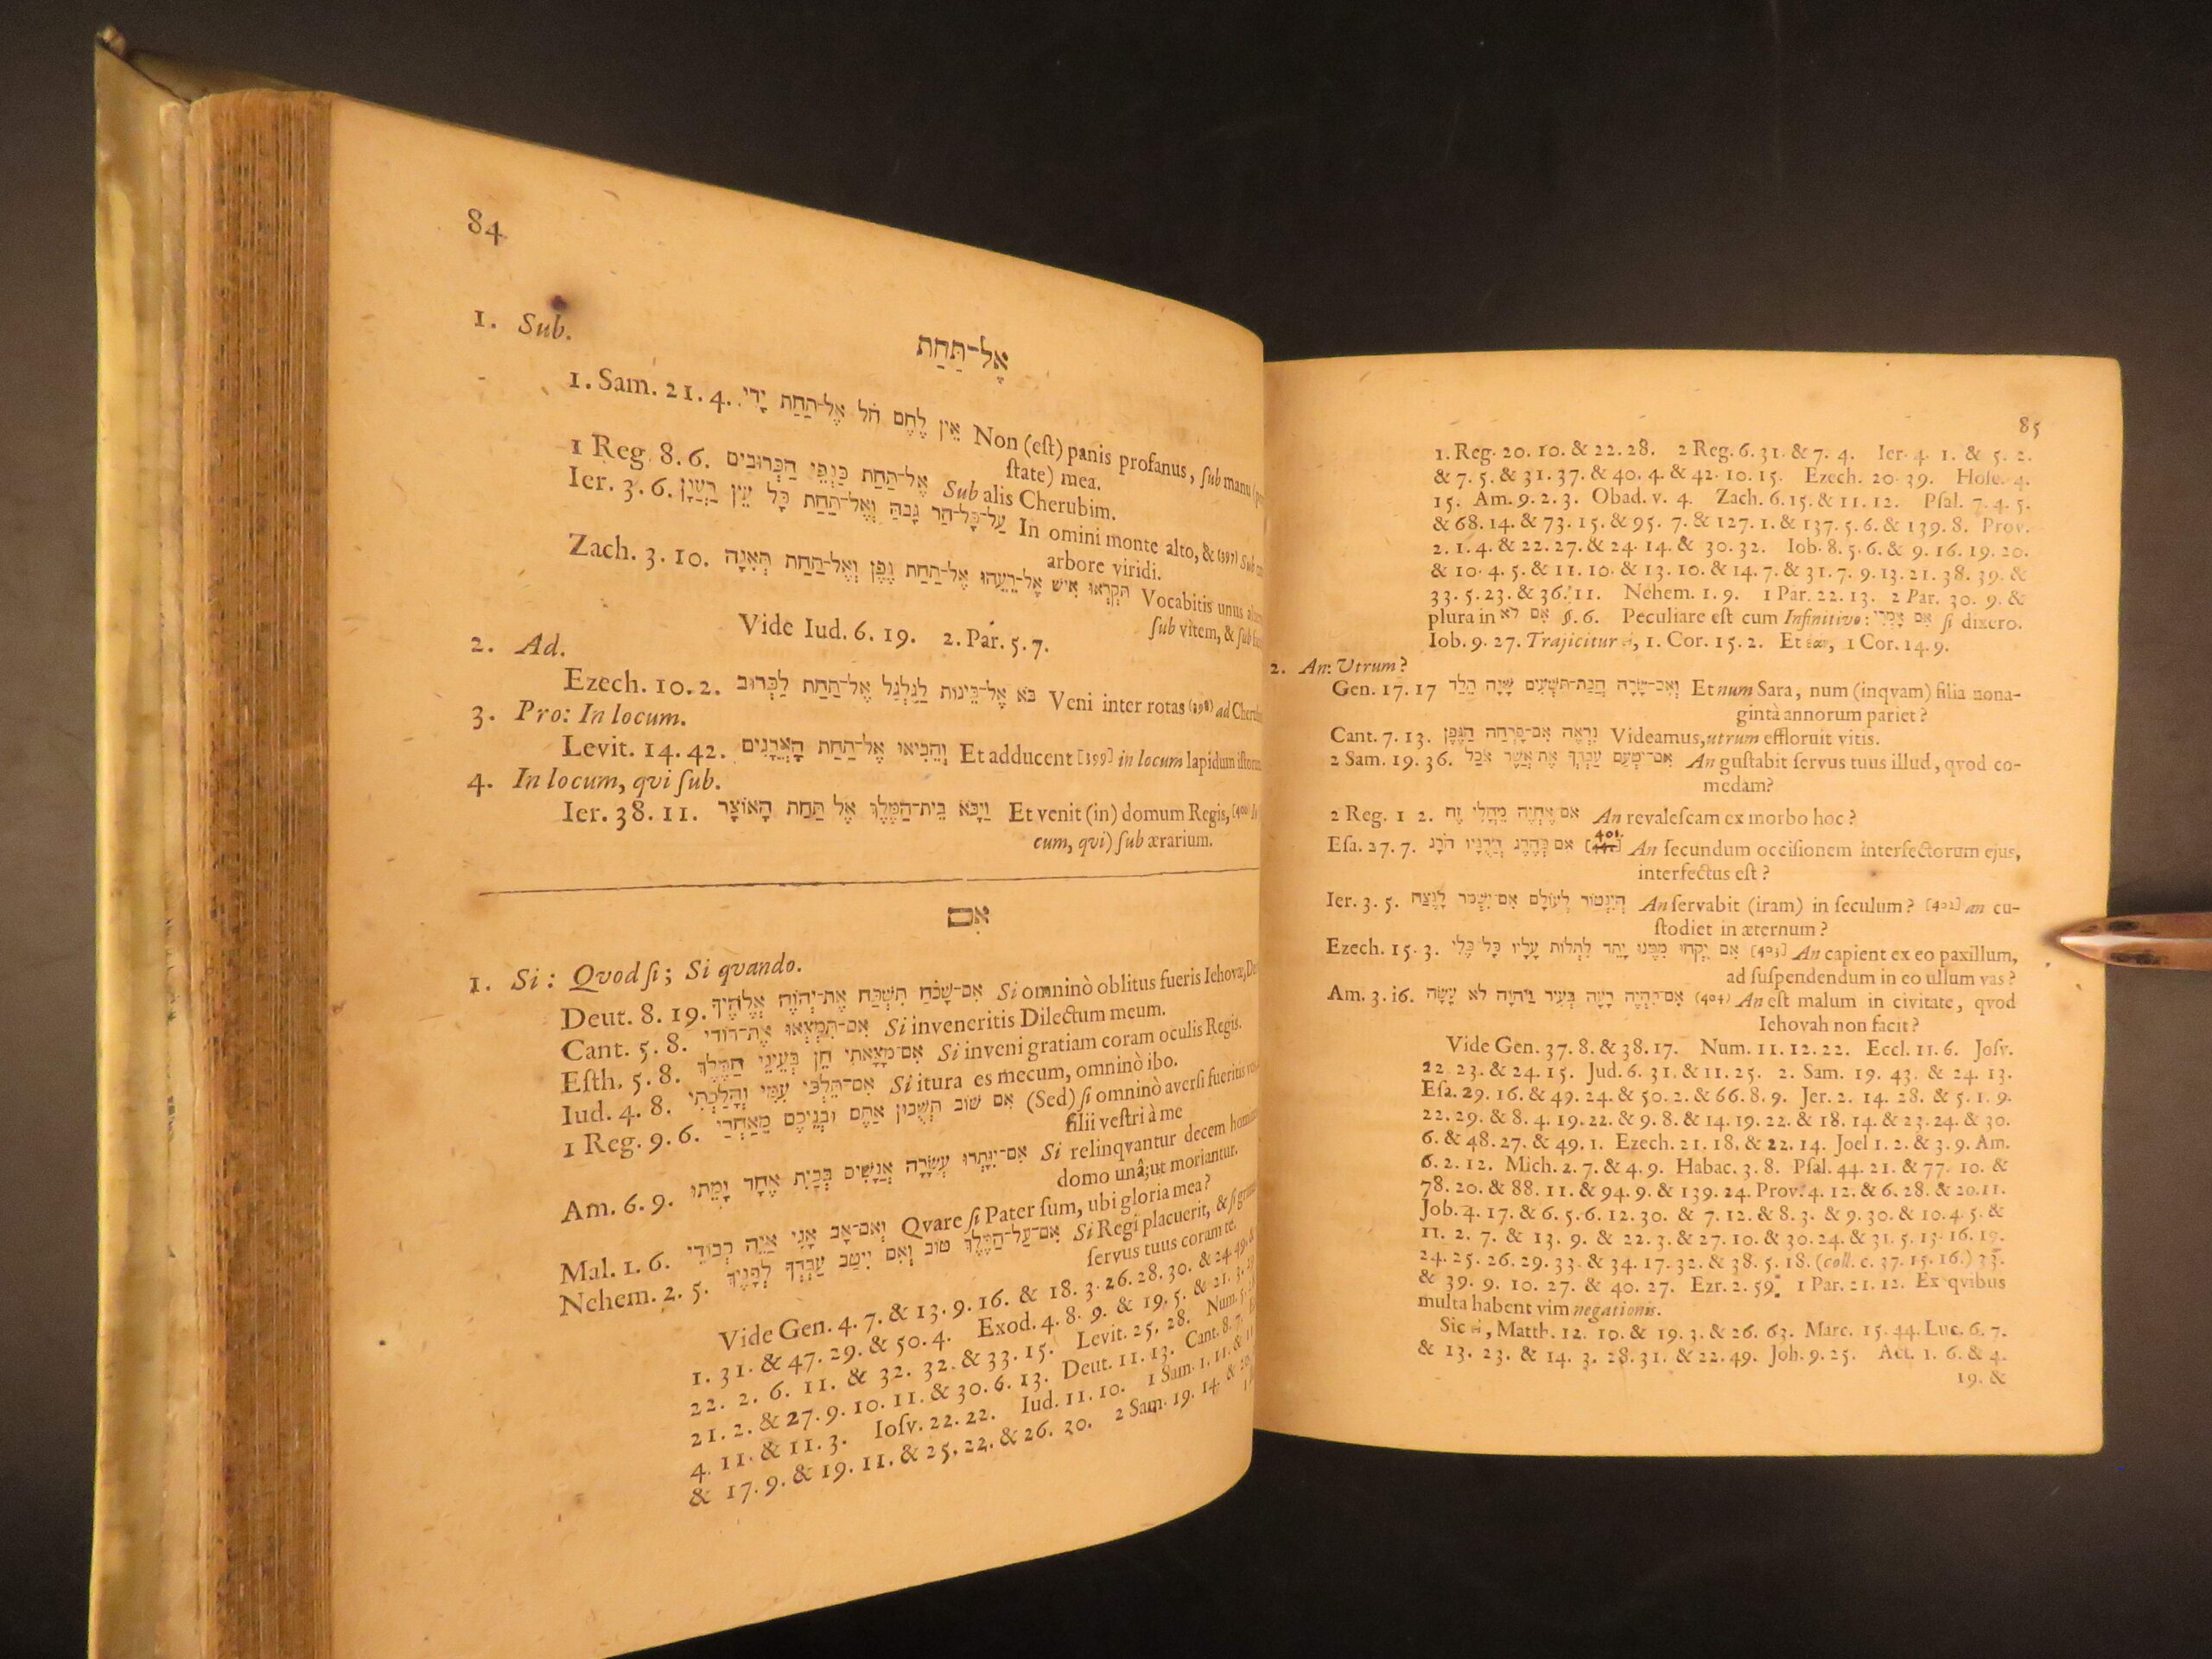 84
אֶל־תַּחַת
1. Sub.
1. Sam. 21. 4. אֵין לֶחֶם חֹל אֶל־תַּחַת יָדִי Non (eſt) panis profanus, ſub manu
ſtate) mea.
1 Reg. 8. 6. אֶל־תַּחַת כַּנְפֵי הַכְּרוּבִים Sub alis Cherubim.
Ier. 3. 6. עַל־כָּל־הַר גָּבֹהַּ וְאֶל־תַּחַת כָּל עֵץ רַעֲנָן In omini monte alto, & (397) Sub
arbore viridi.
Zach. 3. 10. תִּקְרְאוּ אִישׁ אֶל־רֵעֵהוּ אֶל־תַּחַת גֶּפֶן וְאֶל־תַּחַת תְּאֵנָה Vocabitis unus
ſub vitem, & ſub
Vide Iud. 6. 19. 2. Par. 5. 7.
2. Ad.
Ezech. 10. 2. בֹּא אֶל־בֵּינוֹת לַגַּלְגַּל אֶל־תַּחַת לַכְּרוּב Veni inter rotas (398) ad
3. Pro: In locum.
Levit. 14. 42. וְהֵבִיאוּ אֶל־תַּחַת הָאֲבָנִים Et adducent [399] in locum lapidum
4. In locum, qui ſub.
Ier. 38. 11. וַיָּבֹא בֵית־הַמֶּלֶךְ אֶל תַּחַת הָאוֹצָר Et venit (in) domum Regis, [400
cum, qui) ſub ærarium.
אִם
1. Si: Qvod ſi; Si qvando.
Deut. 8. 19. אִם־שָׁכֹחַ תִּשְׁכַּח אֶת־יְהוָֹה אֱלֹהֶיךָ Si omninò oblitus fueris Iehovæ,
Cant. 5. 8. אִם־תִּמְצְאוּ אֶת־דּוֹדִי Si inveneritis Dilectum meum.
Eſth. 5. 8. אִם־מָצָאתִי חֵן בְּעֵינֵי הַמֶּלֶךְ Si inveni gratiam coram oculis Regis.
Iud. 4. 8. אִם־תֵּלְכִי עִמִּי וְהָלָכְתִּי Si itura es mecum, omninò ibo.
1 Reg. 9. 6. אִם שׁוֹב תְּשֻׁבוּן אַתֶּם וּבְנֵיכֶם מֵאַחֲרַי (Sed) ſi omninò averſi fueritis
filii veſtri à me
Am. 6. 9. אִם־יִוָּתְרוּ עֲשָׂרָה אֲנָשִׁים בְּבַיִת אֶחָד וָמֵתוּ Si relinqvantur decem
domo unâ; ut moriantur.
Mal. 1. 6. וְאִם־אָב אָנִי אַיֵּה כְבוֹדִי Qvare ſi Pater ſum, ubi gloria mea?
Nehem. 2. 5. אִם־עַל־הַמֶּלֶךְ טוֹב וְאִם יִיטַב עַבְדְּךָ לְפָנֶיךָ Si Regi placuerit, & ſi
ſervus tuus coram te.
Vide Gen. 4. 7. & 13. 9. 16. & 18. 3. 26. 28. 30. & 24. 49.
1. 31. & 47. 29. & 50. 4. Exod. 4. 8. 9. & 19. 5. & 21. 3.
22. 2. 6. 11. & 32. 32. & 33. 15. Levit. 25. 28. Num.
21. 2. & 27. 9. 10. 11. & 30. 6. 13. Deut. 11. 13. Cant. 8. 7.
4. 11. & 11. 3. Ioſv. 22. 22. Iud. 11. 10. 1 Sam. 1. 11. &
& 17. 9. & 19. 11. & 25. 22. & 26. 20. 2 Sam. 19. 14. &
85
1. Reg. 20. 10. & 22. 28. 2 Reg. 6. 31. & 7. 4. Ier. 4. 1. & 5. 2.
& 7. 5. & 31. 37. & 40. 4. & 42. 10. 15. Ezech. 20. 39. Hoſe. 4.
15. Am. 9. 2. 3. Obad. v. 4. Zach. 6. 15. & 11. 12. Pſal. 7. 4. 5.
& 68. 14. & 73. 15. & 95. 7. & 127. 1. & 137. 5. 6. & 139. 8. Prov.
2. 1. 4. & 22. 27. & 24. 14. & 30. 32. Iob. 8. 5. 6. & 9. 16. 19. 20.
& 10. 4. 5. & 11. 10. & 13. 10. & 14. 7. & 31. 7. 9. 13. 21. 38. 39. &
33. 5. 23. & 36. 11. Nehem. 1. 9. 1 Par. 22. 13. 2 Par. 30. 9. &
plura in אִם לֹא §. 6. Peculiare eſt cum Infinitivo: אִם אָמְרִי ſi dixero.
Iob. 9. 27. Trajicitur 1. Cor. 15. 2. Et 1 Cor. 14. 9.
2. An: Utrum?
Gen. 17. 17 וְאִם־שָׂרָה הֲבַת־תִּשְׁעִים שָׁנָה תֵּלֵד Et num Sara, num (inqvam) filia nona-
gintà annorum pariet?
Cant. 7. 13. נִרְאֶה אִם־פָּרְחָה הַגֶּפֶן Videamus, utrum effloruit vitis.
2 Sam. 19. 36. אִם־יִטְעַם עַבְדְּךָ אֶת־אֲשֶׁר אֹכַל An guſtabit ſervus tuus illud, qvod co-
medam?
2 Reg. 1 2. אִם־אֶחְיֶה מֵחֳלִי זֶה An revaleſcam ex morbo hoc?
Eſa. 27. 7. אִם כְּהֶרֶג הֲרֻגָיו הֹרָג 401. An ſecundum occiſionem interfectorum ejus,
interfectus eſt?
Ier. 3. 5. הֲיִנְטוֹר לְעוֹלָם אִם־יִשְׁמֹר לָנֶצַח An ſervabit (iram) in ſeculum? [402] an cu-
ſtodiet in æternum?
Ezech. 15. 3. אִם יִקְחוּ מִמֶּנּוּ יָתֵד לִתְלוֹת עָלָיו כָּל־כֶּלִי [403] An capient ex eo paxillum,
ad ſuſpendendum in eo ullum vas?
Am. 3. 16. אִם־תִּהְיֶה רָעָה בְּעִיר וַיהוָה לֹא עָשָׂה (404) An eſt malum in civitate, qvod
Iehovah non facit?
Vide Gen. 37. 8. & 38. 17. Num. 11. 12. 22. Eccl. 11. 6. Joſv.
22 23. & 24. 15. Jud. 6. 31. & 11. 25. 2. Sam. 19. 43. & 24. 13.
Eſa. 29. 16. & 49. 24. & 50. 2. & 66. 8. 9. Jer. 2. 14. 28. & 5. 1. 9.
22. 29. & 8. 4. 19. 22. & 9. 8. & 14. 19. 22. & 18. 14. & 23. 24. & 30.
6. & 48. 27. & 49. 1. Ezech. 21. 18. & 22. 14. Joel 1. 2. & 3. 9. Am.
6. 2. 12. Mich. 2. 7. & 4. 9. Habac. 3. 8. Pſal. 44. 21. & 77. 10. &
78. 20. & 88. 11. & 94. 9. & 139. 24. Prov. 4. 12. & 6. 28. & 20. 11.
Job. 4. 17. & 6. 5. 6. 12. 30. & 7. 12. & 8. 3. & 9. 30. & 10. 4. 5. &
11. 2. 7. & 13. 9. & 22. 3. & 27. 10. & 30. 24. & 31. 5. 13. 16. 19.
24. 25. 26. 29. 33. & 34. 17. 32. & 38. 5. 18. (coll. c. 37. 15. 16.) 33.
& 39. 9. 10. 27. & 40. 27. Ezr. 2. 59. 1 Par. 21. 12. Ex qvibus
multa habent vim negationis.
Sic Matth. 12. 10. & 19. 3. & 26. 63. Marc. 15. 44. Luc. 6. 7.
& 13. 23. & 14. 3. 28. 31. & 22. 49. Joh. 9. 25. Act. 1. 6. & 4.
19. &